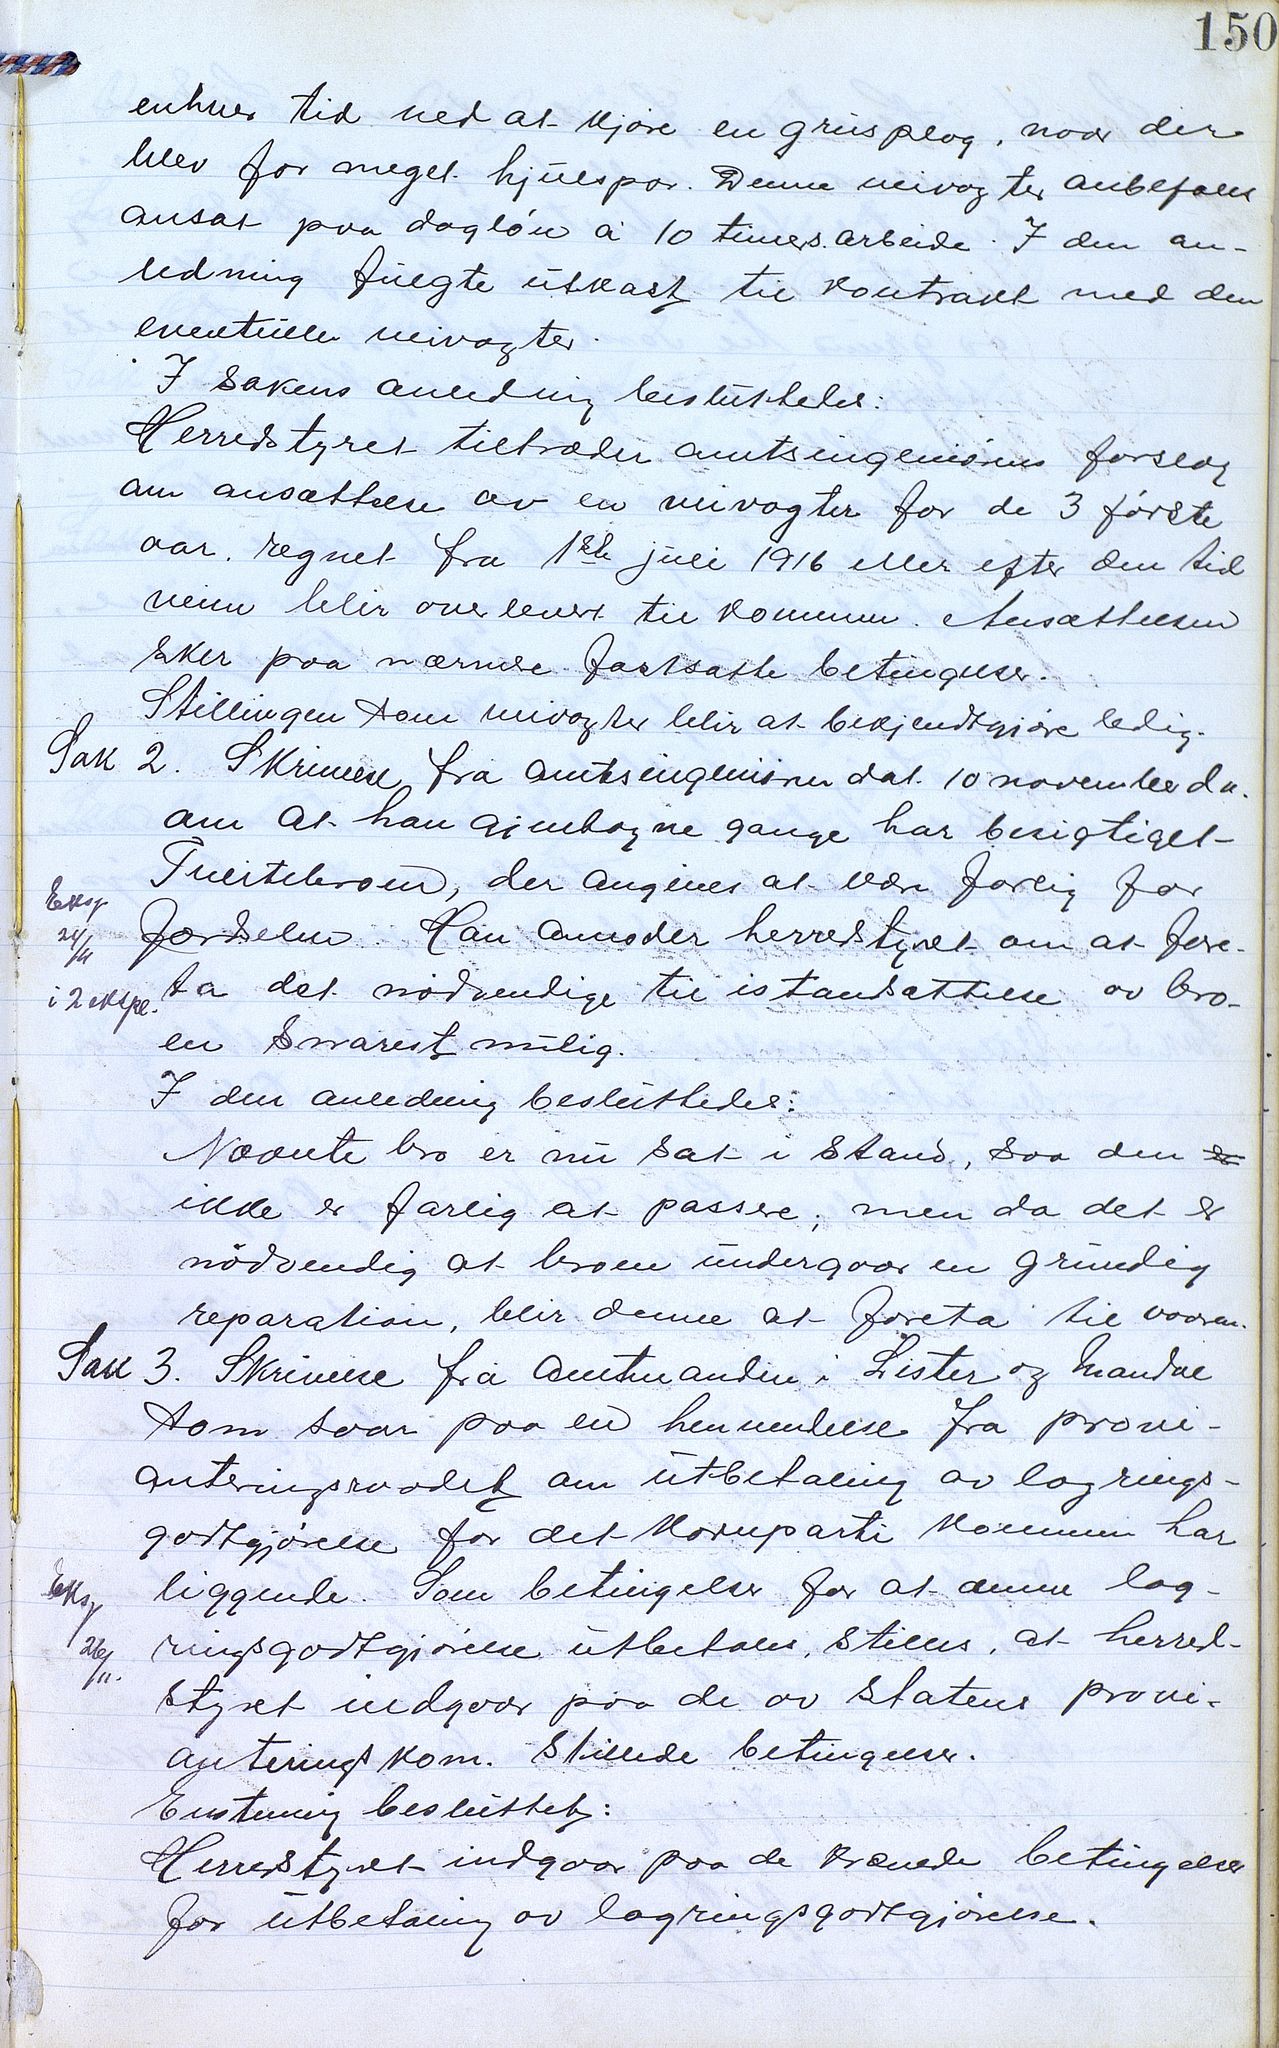 150
enhver tid ved at kjøre en grusplog, naar der
blev for meget hjulspor. Denne veivogter anbefales
ansat paa dagløn à 10 timers arbeide. I den an-
ledning fulgte utkast til kontrakt med den
eventuelle veivogter.
I sakens anledning besluttedes:
Herredstyret tiltræder amtsingeniørens forslag
om ansættelse av en veivogter for de 3 første
aar, regnet fra 1ste juli 1916 eller efter den tid
veien blir overlevert til kommunen. Ansættelsen
sker paa nærmere fastsatte betingelser.
Stillingen som veivogter blir at bekjendtgjøre ledig.
Sak 2. Skrivelse fra amtsingeniøren dat. 10 november d.a.
om at han gjentagne gange har besigtiget
Tveitebroen, der angives at være farlig for
Eksp
færdselen. Han anmoder herredstyret om at fore-
24/11
ta det nødvendige til istandsættelse av bro-
i 2 ekspl.
en snarest mulig.
I den anledning besluttedes:
Nævnte bro er nu sat i stand, saa den
ikke er farlig at passere, men da det er
nødvendig at broen undergaar en grundig
reparation, blir denne at foreta til vaaren.
Sak 3. Skrivelse fra amtmanden i Lister og Mandal
som svar paa en henvendelse fra provi-
anteringsraadet om utbetaling av lagrings-
godtgjørelse for det kornparti kommunen har
liggende. Som betingelser for at denne lag-
Eksp
ringsgodtgjørelse utbetales, stilles, at herred-
26/11.
styret indgaar paa de av statens provi-
anteringskom. stillede betingelser.
Enstemmig besluttet:
Herredstyret indgaar paa de krævede betingelser
for utbetaling av lagringsgodtgjørelse.